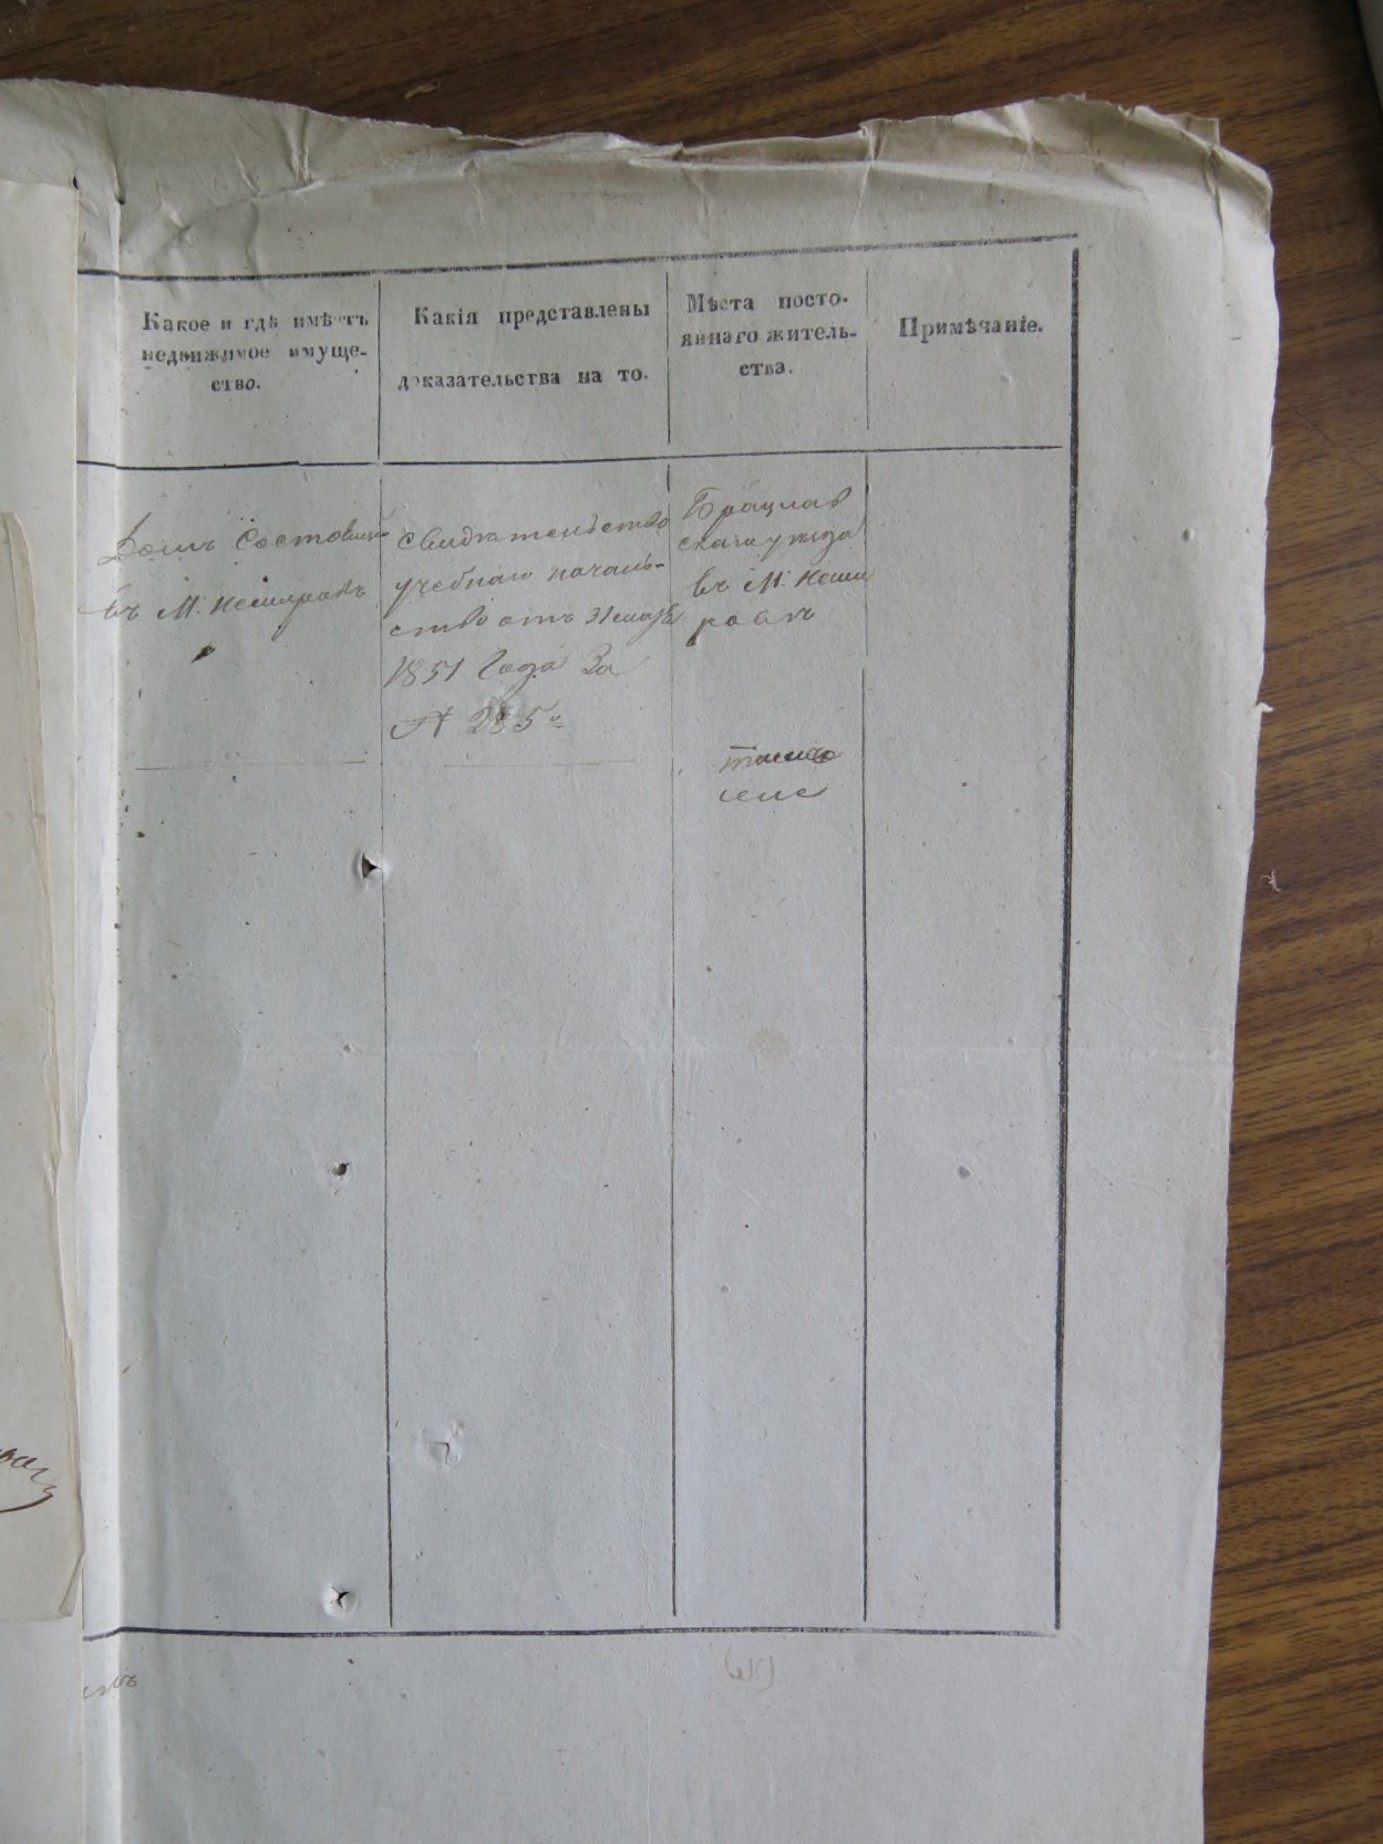 Какое и гдѣ имѣетъ
недвижимое имуще-
ство.
Какія представлены
доказательства на то.
Мѣста посто-
яннаго житель-
ства.
Примѣчаніе.
Домъ Состоящій
въ М. Немировѣ
Свидѣтельство
учебнаго началь-
ства отъ 31
1851 Года За
№ 285
Брацлав
скаго уезда
въ М. Неми
ровѣ